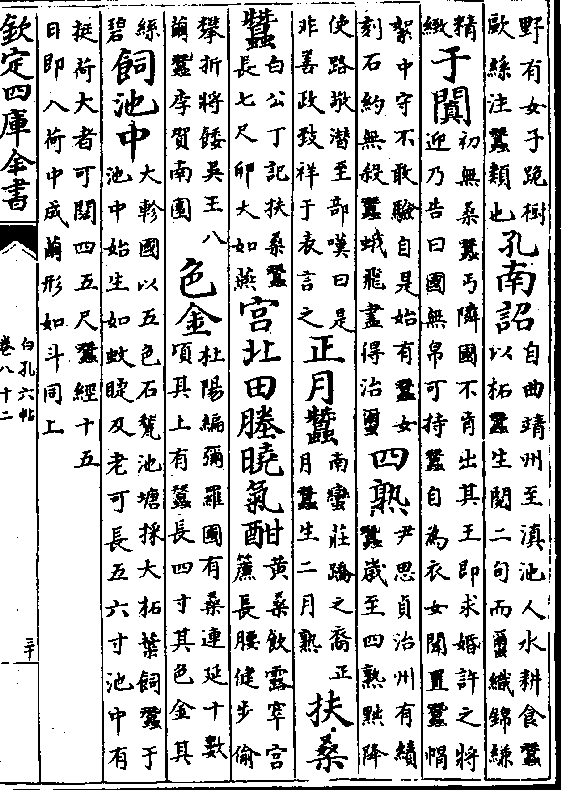 野有女子跪樹
歐絲注蠶類也
孔南詔
自曲靖州至滇池人水耕食蠶
以柘蠶生閱二旬而璽織錦絲
精
緻
于闐
初無桑蠶丐隣國不肯出其王即求婚許之將
迎乃告曰國無帛可持蠶自為衣女聞置蠶帽
絮中守不敢驗自是始有蠶女
刻石約無殺蠶蛾飛盡得治璽
四熟
尹思貞治州有績
蠶歲至四熟黜降
使路敬潛至部嘆曰是
非善政致祥于表言之
正月蠶
南蠻莊蹻之裔正
月蠶生二月熟
扶桑
蠶
白公丁記扶桑蠶
長七尺卵大如燕
宮北田塍曉氣酣
黄桑飲露窣宮
簾長腰健步偷
攀折將餧吳王八
繭蠶李賀南園
色金
杜陽編彌羅國有桑連延十數
頃其上有蠶長四寸其色金其
絲
碧
飼池中
大軫國以五色石甃池塘採大柘葉飼蠶于
池中始生如蚊睫及老可長五六寸池中有
挺荷大者可闊四五尺蠶經十五
日即入荷中成繭形如斗同上
欽定四庫全書
白孔六帖
卷八十二
三十